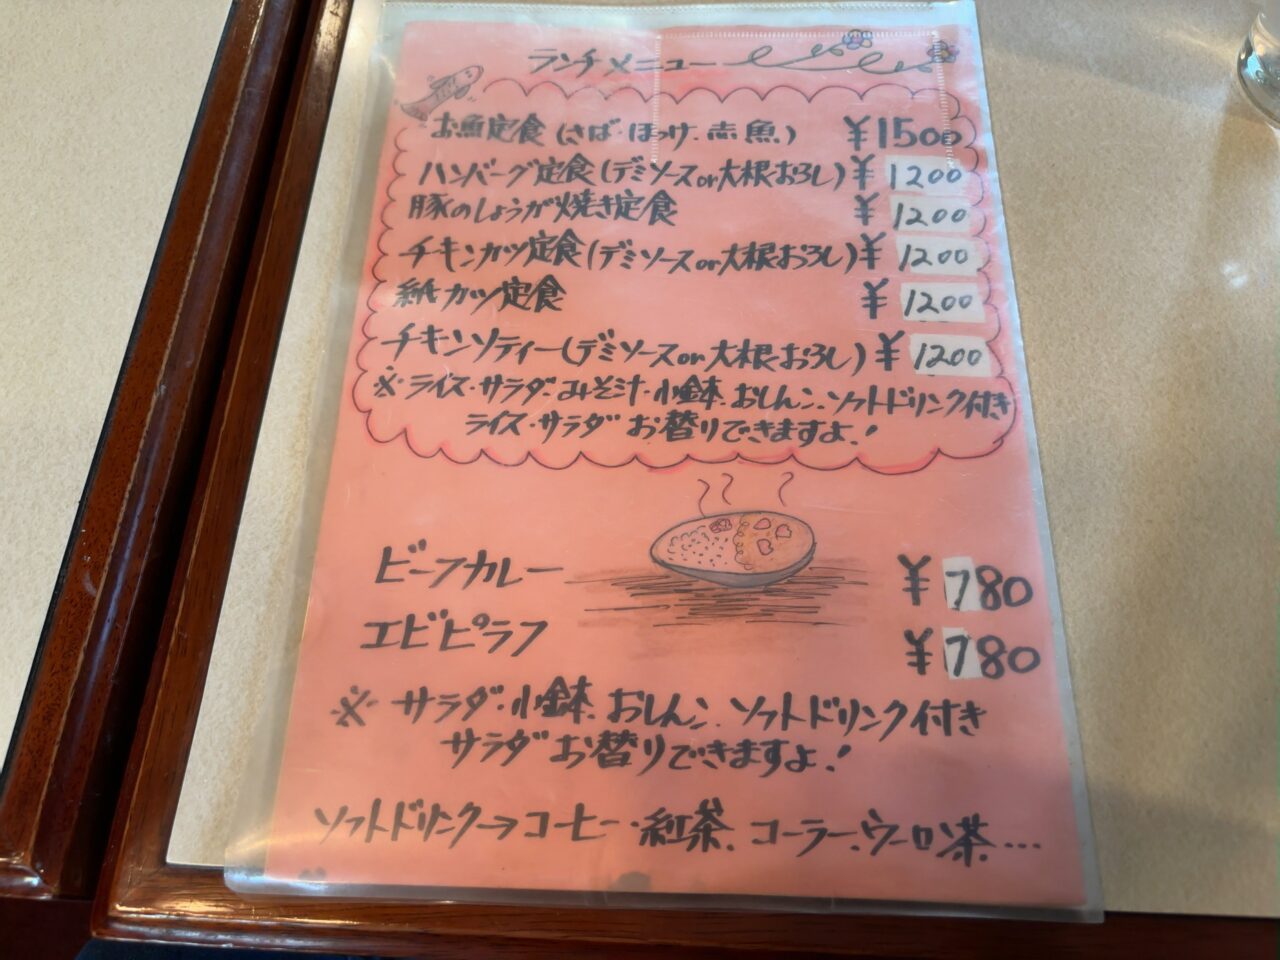 ランチメニュー
お魚定食(さば・ほっけ、赤魚) ¥1500
ハンバーグ定食(デミソースor大根おろし) ¥1200
豚のしょうが焼き定食 ¥1200
チキンカツ定食(デミソースor大根おろし) ¥1200
紙カツ定食 ¥1200
チキンソティー(デミソースor大根おろし) ¥1200
※ライス・サラダ、みそ汁・小鉢、おしんこ、ソフトドリンク付き
ライス・サラダお替りできますよ!
ビーフカレー ¥780
エビピラフ ¥780
※サラダ・小鉢、おしんこ、ソフトドリンク付き
サラダお替りできますよ!
ソフトドリンク→コーヒー・紅茶、コーラ、ウーロン茶…